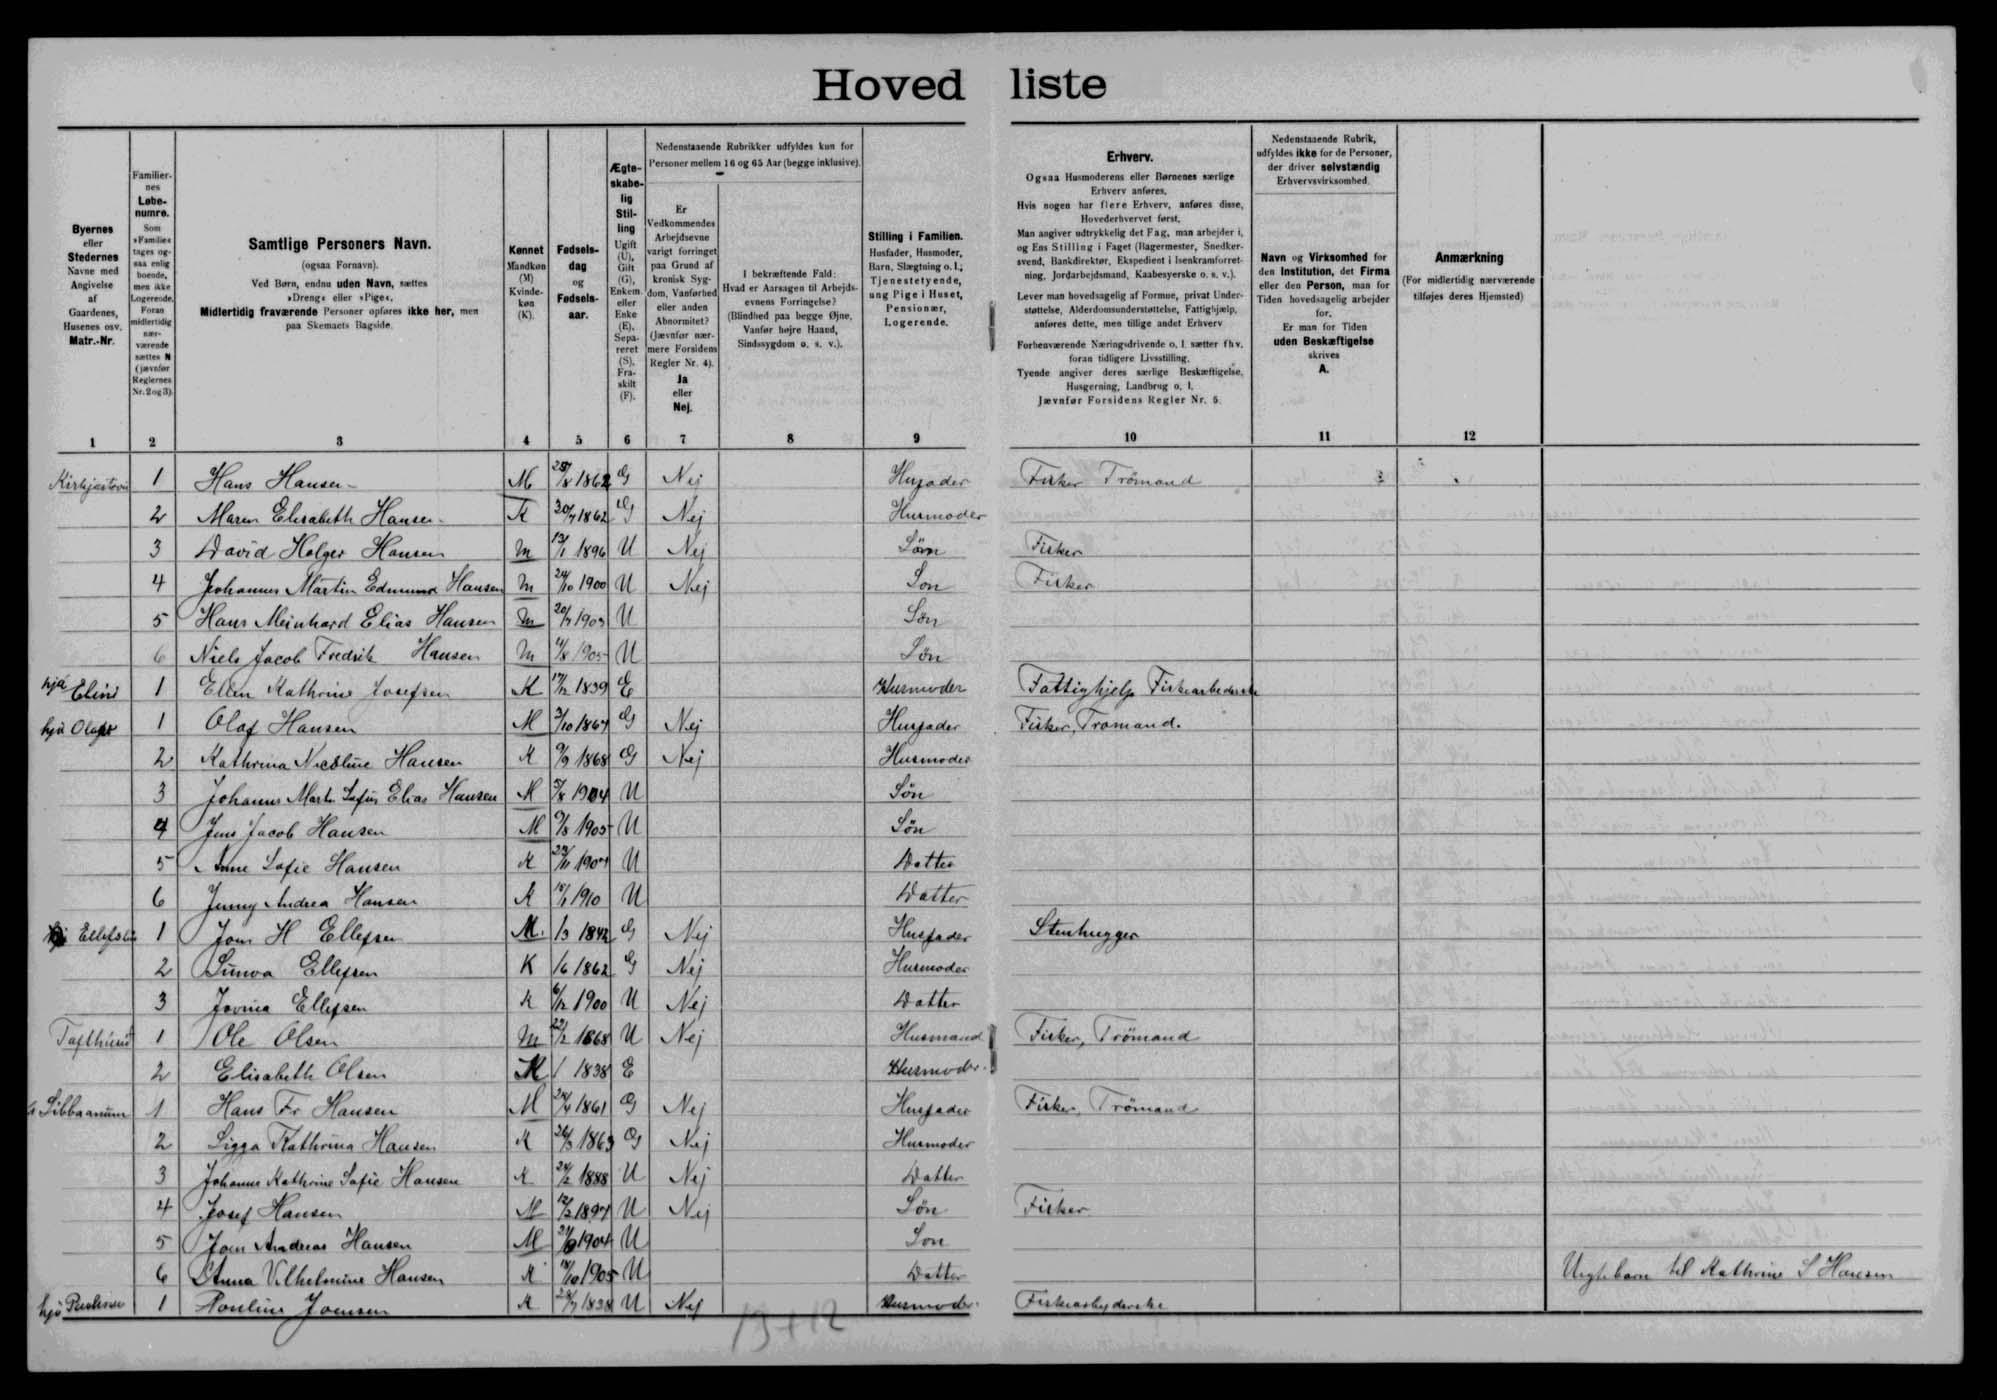 Hovedliste
Byernes eller Stedernes Navne med Angivelse af Gaardenes, Husenes osv. Matr.-Nr.
Familiernes Løbenumre. Som »Familie« tages ogsaa enlig boende, men ikke Logerende. Foran midlertidig nærværende sættes N (jævnfør Reglernes Nr. 2 og 3).
Samtlige Personers Navn. (ogsaa Fornavn). Ved Børn, endnu uden Navn, sættes »Dreng« eller »Pige«. Midlertidig fraværende Personer opføres ikke her, men paa Skemaets Bagside.
Kønnet Mandkøn (M) Kvindekøn (K).
Fødselsdag og Fødselsaar.
Ægteskabelig Stilling Ugift (U), Gift (G), Enkem. eller Enke (E), Separeret (S), Fraskilt (F).
Nedenstaaende Rubrikker udfyldes kun for Personer mellem 16 og 65 Aar (begge inklusive).
Er Vedkommendes Arbejdsevne varigt forringet paa Grund af kronisk Sygdom, Vanførhed eller anden Abnormitet? (Jævnfør nærmere Forsidens Regler Nr. 4). Ja eller Nej.
I bekræftende Fald: Hvad er Aarsagen til Arbejdsevnens Forringelse? (Blindhed paa begge Øjne, Vanfør højre Haand, Sindssygdom o. s. v.).
Stilling i Familien. Husfader, Husmoder, Barn, Slægtning o. l., Tjenestetyende, ung Pige i Huset, Pensionær, Logerende.
Erhverv.
Ogsaa Husmoderens eller Børnenes særlige Erhverv anføres.
Hvis nogen har flere Erhverv, anføres disse, Hovederhvervet først.
Man angiver udtrykkelig det Fag, man arbejder i, og Ens Stilling i Faget (Bagermester, Snedkersvend, Bankdirektør, Ekspedient i Isenkramforretning, Jordarbejdsmand, Kaabesyerske o. s. v.).
Lever man hovedsagelig af Formue, privat Understøttelse, Alderdomsunderstøttelse, Fattighjælp, anføres dette, men tillige andet Erhverv
Forhenværende Næringsdrivende o. l. sætter fhv. foran tidligere Livsstilling.
Tyende angiver deres særlige Beskæftigelse, Husgerning, Landbrug o. l.
Jævnfør Forsidens Regler Nr. 5.
Nedenstaaende Rubrik, udfyldes ikke for de Personer, der driver selvstændig Erhvervsvirksomhed.
Navn og Virksomhed for den Institution, det Firma eller den Person, man for Tiden hovedsagelig arbejder for.
Er man for Tiden uden Beskæftigelse skrives A.
Anmærkning (For midlertidig nærværende tilføjes deres Hjemsted)
1 2 3 4 5 6 7 8 9 10 11 12
1 Hans Hansen M 1862 G Nej Husfader Fisker Trömand
2 Maren Elisabeth Hansen K 30/7 1862 G Nej Husmoder
3 David Holger Hansen M 13/1 1896 U Nej Sön Fisker
4 Johannes Martin Edmund Hansen M 24/10 1900 U Nej Sön Fisker
5 Hans Meinhard Elias Hansen M 1903 U Sön
6 Niels Jacob Fredrik Hansen M 1905 U Sön
hjá Elini 1 Ellen Kathrine Josefsen K 17/12 1839 E Husmoder Fattighjelp Fiskearbederske
hjá 1 Olaf Hansen M 3/10 1867 G Nej Husfader Fisker, Trömand.
2 Kathrina Nicoline Hansen K 9/9 1868 G Nej Husmoder
3 Johannes Martin Sofus Elias Hansen M 5/8 1904 U Sön
4 Jens Jacob Hansen M 9/8 1905 U Sön
5 Anne Sofie Hansen K 1907 U Datter
6 Jenny Andrea Hansen K 1910 U Datter
1 Joen H Ellefsen M. 13 1842 G Nej Husfader Stenhugger
2 Sunva Ellefsen K 16 1862 G Nej Husmoder
3 Jovina Ellefsen K 6/12 1900 U Nej Datter
1 Ole Olsen M 22/2 1868 U Nej Husmand Fisker, Trömand
2 Elisabeth Olsen K 1 1838 E Husmoder
1 Hans Fr Hansen M 24/4 1861 G Nej Husfader Fisker, Trömand
2 Sigga Kathrina Hansen K 26/3 1863 G Nej Husmoder
3 Johanne Kathrine Sofie Hansen K 24/2 1888 U Nej Datter
4 Josef Hansen M 12/2 1897 U Nej Sön Fisker
5 Joen Andreas Hansen M 1904 U Sön
6 Anna Vilhelmine Hansen K 1905 U Datter Uegtebarn til Kathrine S Hansen
hjá 1 Pouline Joensen K 1838 U Nej Husmoder Fiskearbyderske
13+12